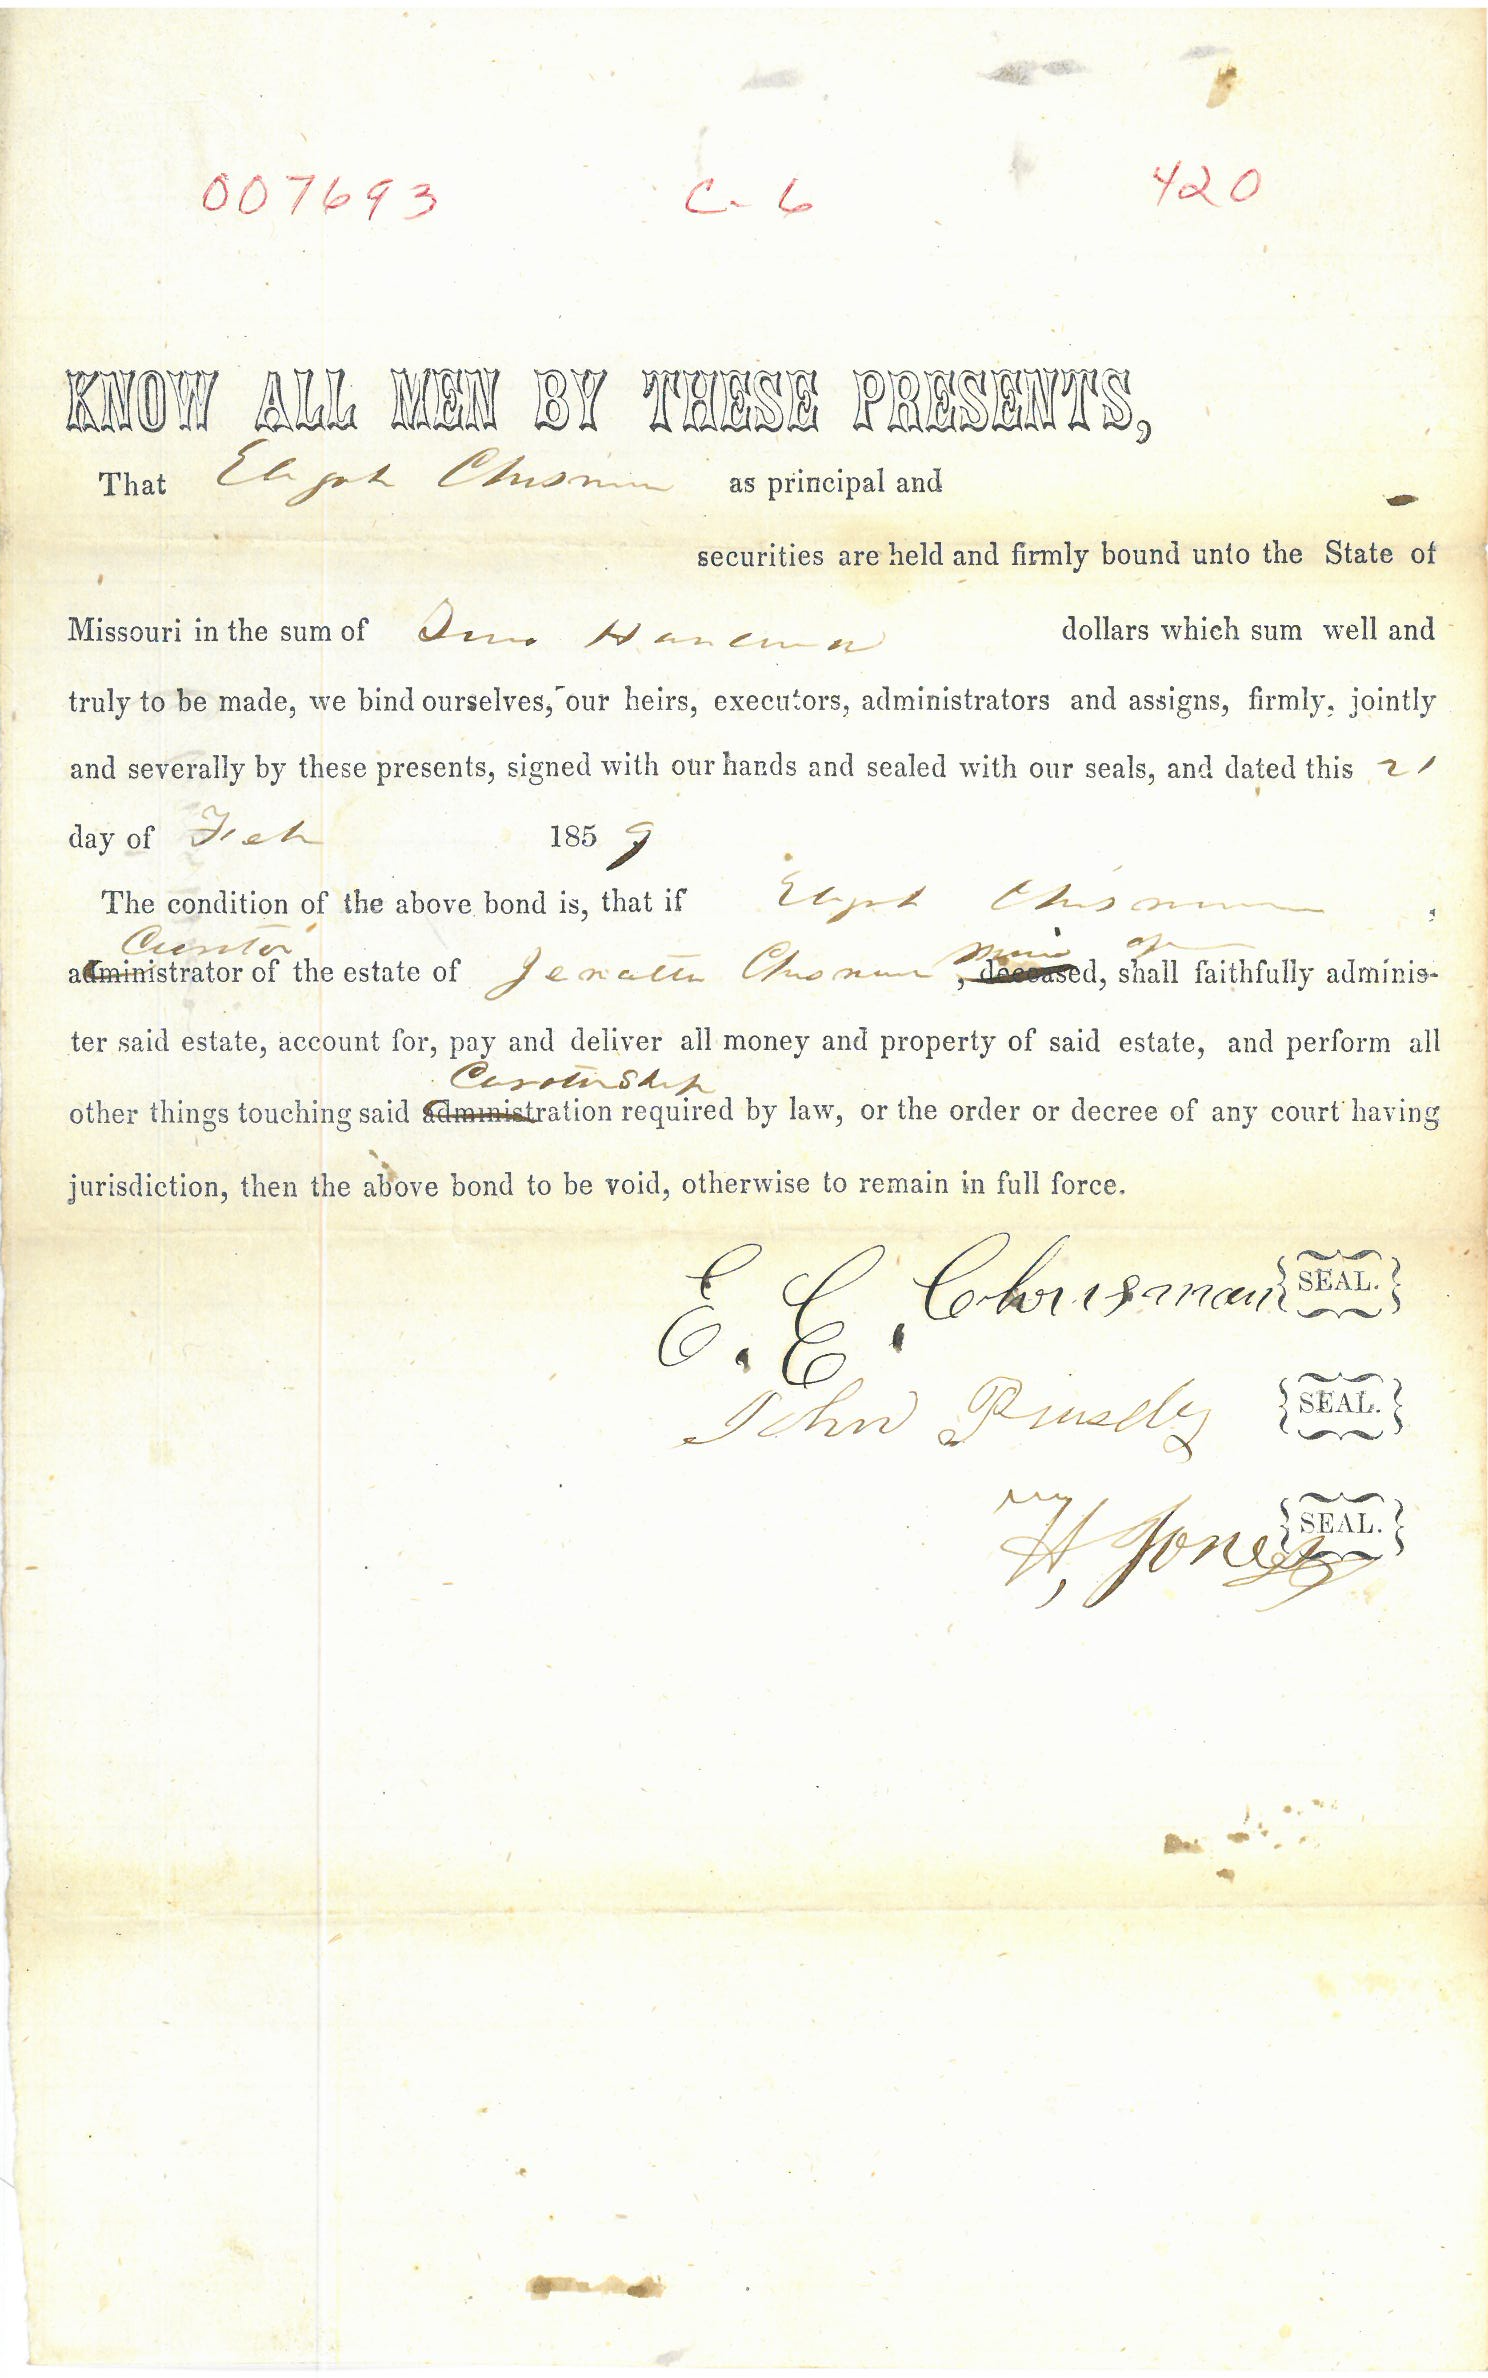 007693 C-6 420
KNOW ALL MEN BY THESE PRESENTS,
That Elijah Chisman as principal and
securities are held and firmly bound unto the State of
Missouri in the sum of Hundred dollars which sum well and
truly to be made, we bind ourselves, our heirs, executors, administrators and assigns, firmly, jointly
and severally by these presents, signed with our hands and sealed with our seals, and dated this 21
day of Feb 1859
The condition of the above bond is, that if Elijah Chisman ,
Curator
administrator of the estate of Chisman, minor of deceased, shall faithfully adminis-
ter said estate, account for, pay and deliver all money and property of said estate, and perform all
Curatorship
other things touching said administration required by law, or the order or decree of any court having
jurisdiction, then the above bond to be void, otherwise to remain in full force.
E. E. Chrisman SEAL.
John SEAL.
H, Jones SEAL.